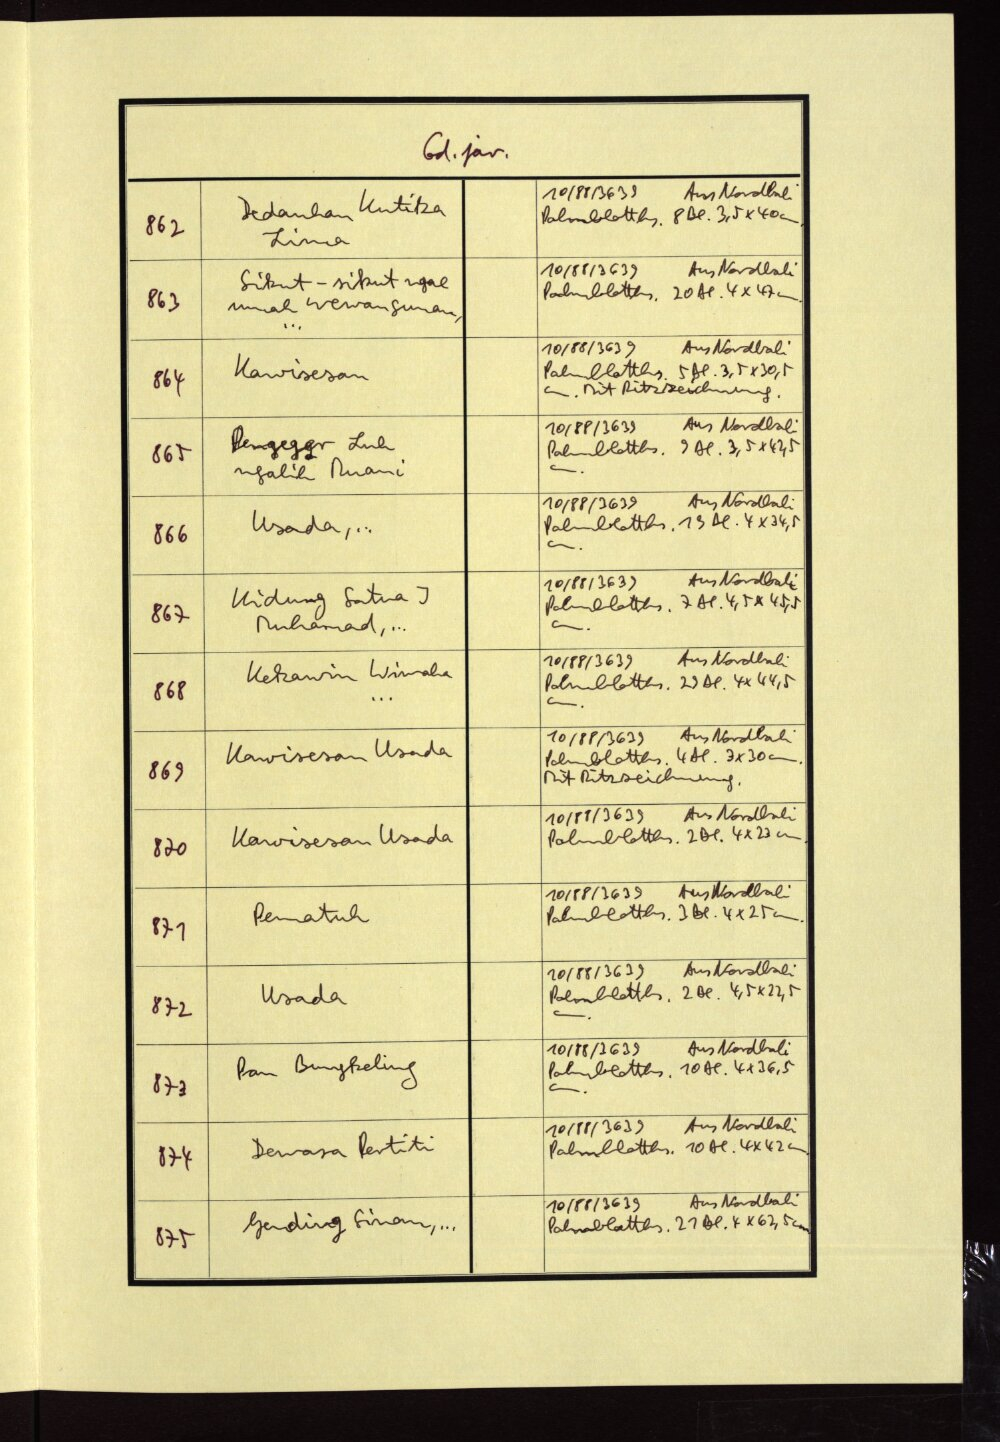 Cod. jav.
862 Dedauhan Kutika 10/88/3639 Aus Nordbali
Lima Palmblatths. 8 Bl. 3,5 x 40 cm.
863 Sikut-sikut ngae 10/88/3639 Aus Nordbali
umah wewangunan, Palmblatths. 20 Bl. 4 x 47 cm.
...
864 Kawisesan 10/88/3639 Aus Nordbali
Palmblatths. 5 Bl. 3,5 x 30,5
cm. Mit Ritzzeichnung.
865 Pengeger Luh 10/88/3639 Aus Nordbali
ngalih Muani Palmblatths. 9 Bl. 3,5 x 42,5
cm.
866 Usada, ... 10/88/3639 Aus Nordbali
Palmblatths. 19 Bl. 4 x 34,5
cm.
867 Kidung Satua I 10/88/3639 Aus Nordbali
Muhamad, ... Palmblatths. 7 Bl. 4,5 x 45,5
cm.
868 Kekawin Wimaha 10/88/3639 Aus Nordbali
... Palmblatths. 29 Bl. 4 x 44,5
cm.
869 Kawisesan Usada 10/88/3639 Aus Nordbali
Palmblatths. 4 Bl. 3 x 30 cm.
Mit Ritzzeichnung.
870 Kawisesan Usada 10/88/3639 Aus Nordbali
Palmblatths. 2 Bl. 4 x 23 cm.
871 Pematuh 10/88/3639 Aus Nordbali
Palmblatths. 3 Bl. 4 x 25 cm.
872 Usada 10/88/3639 Aus Nordbali
Palmblatths. 2 Bl. 4,5 x 22,5
cm.
873 Pan Bungkeling 10/88/3639 Aus Nordbali
Palmblatths. 10 Bl. 4 x 36,5
cm.
874 Dewasa Pertiti 10/88/3639 Aus Nordbali
Palmblatths. 10 Bl. 4 x 42 cm.
875 Gending Sinom, ... 10/88/3639 Aus Nordbali
Palmblatths. 21 Bl. 4 x 62,5 cm